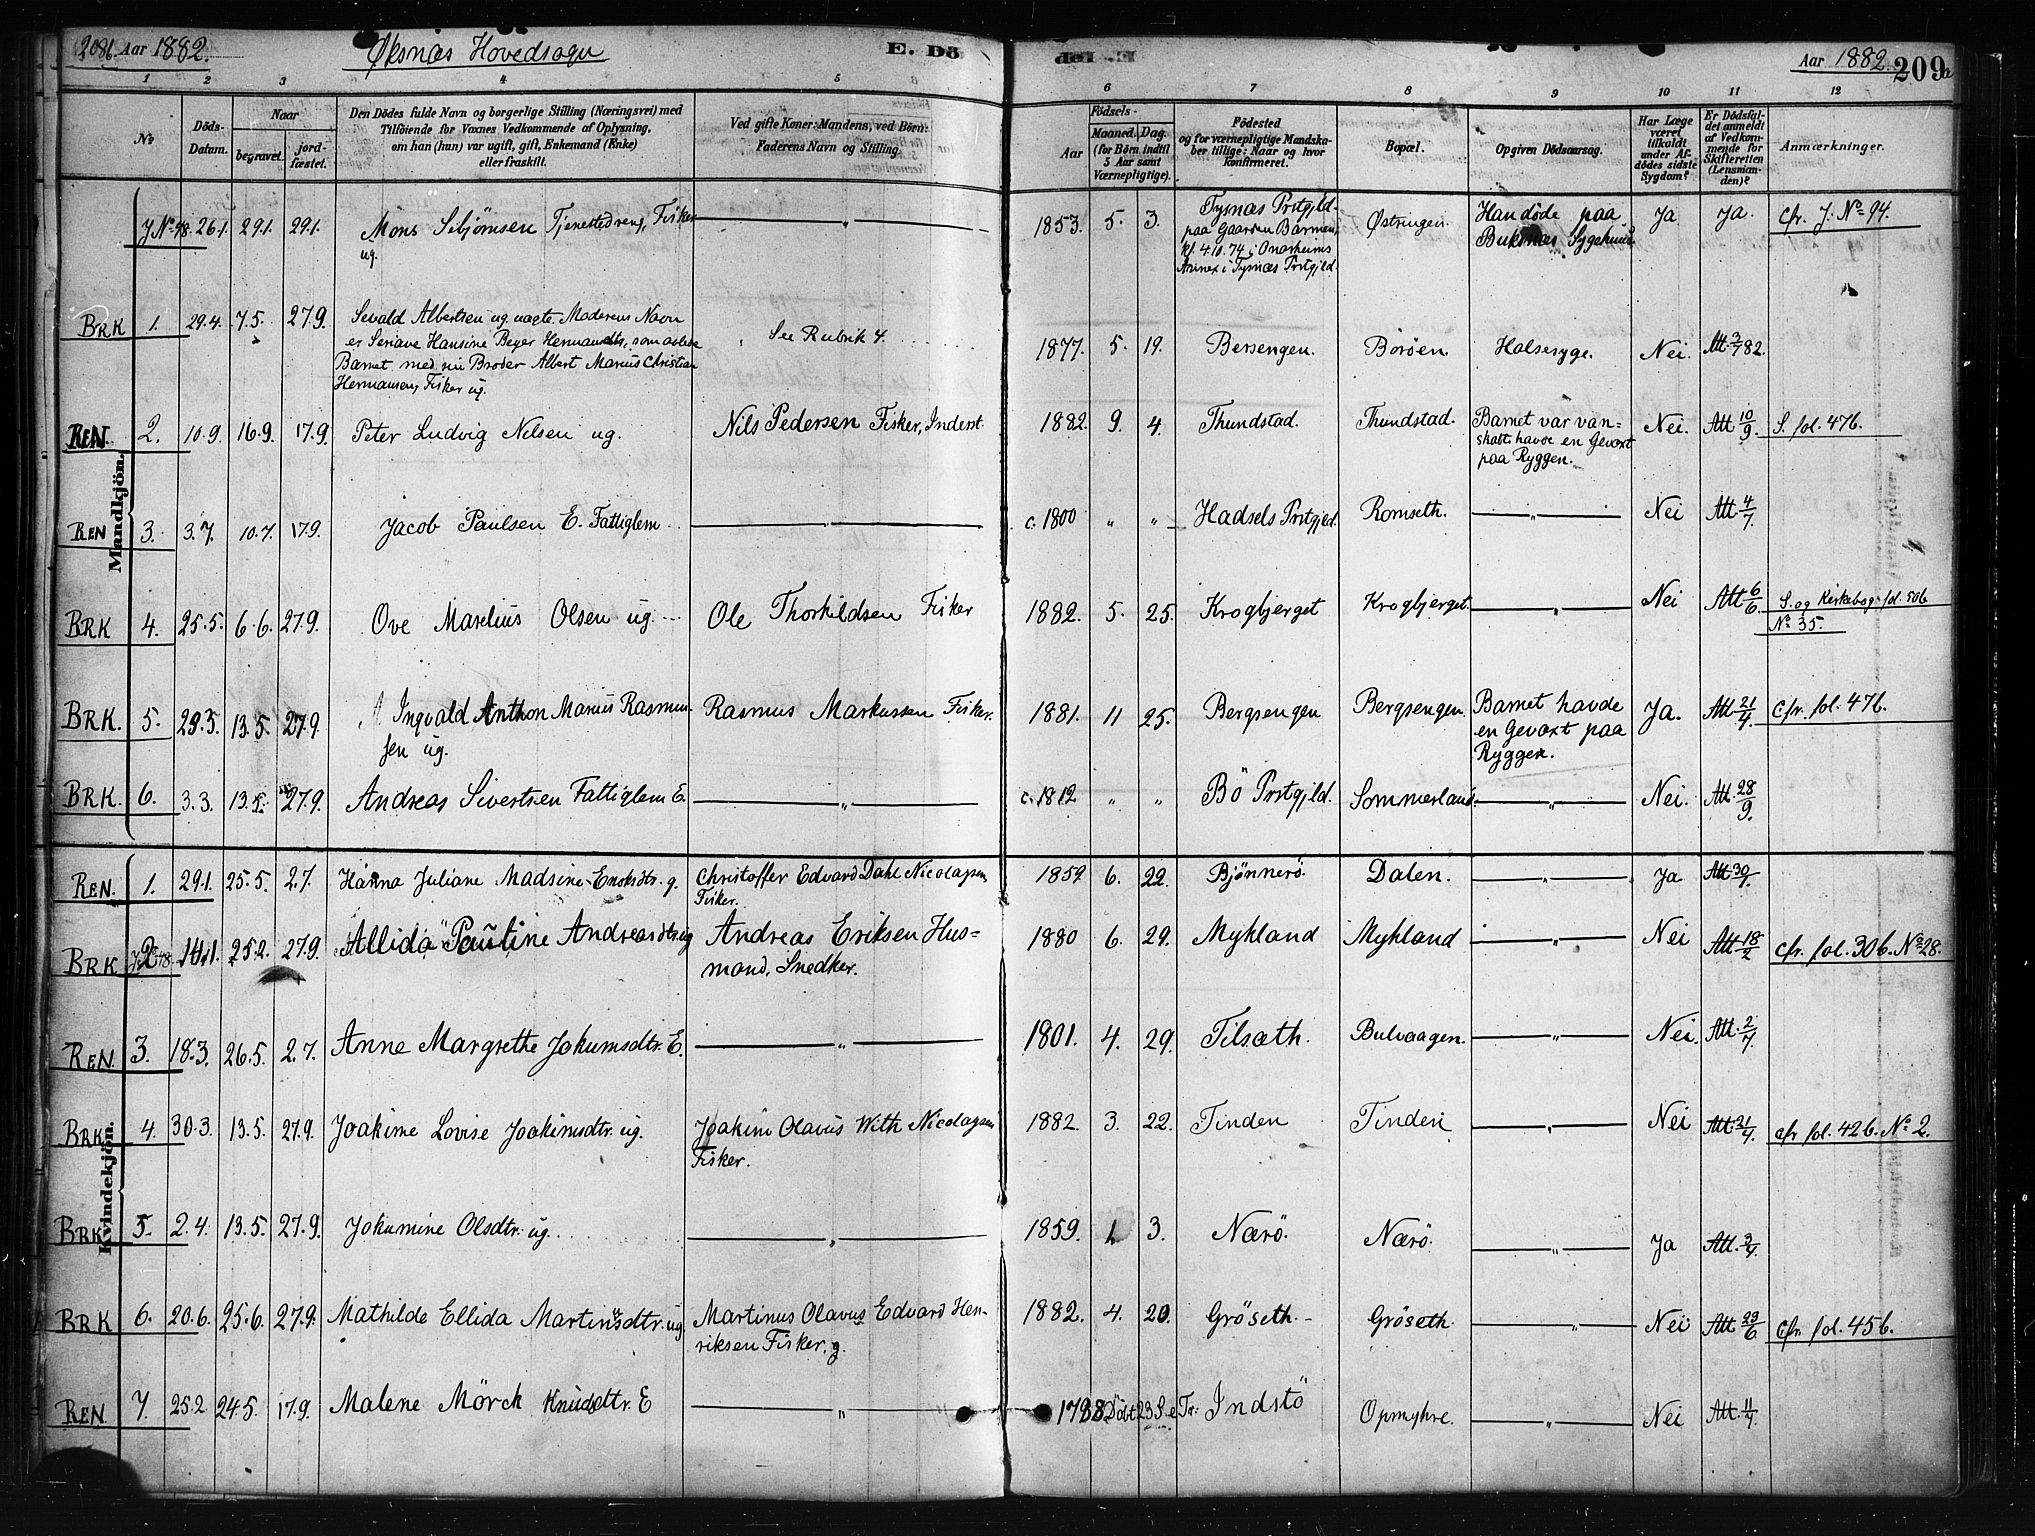 208b. Aar 1882. Øksnæs Hovedsogn E. Dö
del E. Aar 1882. 209a
1 2 3 4 5 6 7 8 9 10 11 12
No Döds-Datum. Naar begravet. jord-fæstet.
Den Dödes fulde Navn og borgerlige Stilling (Næringsvei) med
Tilföiende for Voxnes Vedkommende af Oplysning,
om han (hun) var ugift, gift, Enkemand (Enke)
eller fraskilt.
Ved gifte Koner: Mandens, ved Börn:
Faderens Navn og Stilling.
Födsels-
Aar Maaned. Dag.
(for Börn indtil
5 Aar samt
Værnepligtige).
Födested
og for værnepligtige Mandska-
ber tillige: Naar og hvor
konfirmeret.
Bopæl.
Opgiven Dödsaarsag.
Har Læge
været
tilkaldt
under Af-
dödes sidste
Sygdom?
Er Dödsfal-
det anmeldt
af Vedkom-
mende for
Skifteretten
(Lensman-
den)?
Anmærkninger.
Mandkjön.
J No 98. 26.1. 29.1. 29.1. Mons Tjenestedreng, Fisker — " — 1853. 5. 3. Tysnæs Prstgjld. Østringen. Han döde paa Ja Ja. cfr. J. No 94.
ug. paa Gaarden Buksnæs Sygehuus
kf. 4.10.74 i Onarheims
Annex i Tysnæs Prstgjld.
BRK 1. 29.4. 7.5. 27.9. Sevald Albertsen ug. uægte. Moderens Navn See Rubrik 4. 1877. 5. 19. Bersengen. Boröen. Halsesyge. Nei. Att. 3/7 82.
er Hansine Beyer Hermansdtr, som avlede
Barnet med sin Broder Albert Marius Christian
Hermansen, Fisker ug.
REN. 2. 10.9. 16.9. 17.9. Peter Ludvig Nilsen ug. Nils Pedersen Fisker, Inderst. 1882. 9. 4. Thundstad. Thundstad. Barnet var van- Nei. Att 10/9. S. fol. 47b.
skabt havde en Gevæxt
paa Ryggen.
REN 3. 3.7. 10.7. 17.9. Jacob Paulsen E. Fattiglem — " — c. 1800 " " Hadsels Prstgjld. Romseth. — " — Nei Att. 4/7
BRK 4. 25.5. 6.6. 27.9. Ove Marelius Olsen ug. Ole Thorkildsen Fisker 1882. 5. 25. Krogbjerget Krogbjerget. — " — Nei Att 6/6 S. og Kirkebog fol. 50b
No 35.
BRK. 5. 29.3. 13.5. 27.9. Ingvald Anthon Marius Rasmus- Rasmus Markussen Fisker. 1881. 11 25. Bergsengen Bergsengen. Barnet havde Ja. Att. 21/4. cfr. fol. 47b.
sen ug. en Gevæxt paa
Ryggen.
BRK. 6. 3.3. 13.5. 27.9. Andreas Sivertsen Fattiglem E. — " — c. 1812 " " Bö Prstgjld. Sommerland. — " — Nei. Att. 28/9.
Kvindekjön.
REN. 1. 29.1. 25.5. 2.7. Hanna Juliane Madsine g. Christoffer Edvard Dahl Nicolaysen 1859. 6. 22. Bjönnerö. Dalen. — " — Ja Att. 30/1.
Fisker.
BRK 2. 14.1 25.2. 27.9. Allida Pauline Andreasdtr. ug Andreas Eriksen Hus- 1880 6. 29. Mykland Mykland — " — Nei Att 18/2 cfr. fol. 30b. No 28.
mand, Snedker.
REN. 3. 18.3. 26.5. 2.7. Anne Margrethe Jokumsdtr. E. — " — 1801. 4. 29. Tilsæth. Bulvaagen. — " — Nei. Att. 2/7
BRK. 4. 30.3. 13.5. 27.9. Joakime Lovise Joakimsdtr. ug. Joakim Olavus With Nicolaysen 1882. 3. 22. Tinden Tinden — " — Nei Att. 21/4. cfr fol. 42b. No 2.
Fisker.
BRK. 5. 2.4. 13.5. 27.9. Jokumine Olsdtr. ug. — " — 1859. 3. Nærö. Nærö. — " — Ja Att. 3/4.
BRK 6. 20.6. 25.6. 27.9. Mathilde Ellida Martinusdtr. ug Martinus Olavus Edvard Hen- 1882. 4. 20. Gröseth. Gröseth. — " — Nei Att 23/6 cfr. fol. 45b.
riksen Fisker. g.
REN 7. 25.2. 24.5. 17.9. Malene Mörck Knudsdtr. E — " — 1788 Döbt 23 S. e. Tr. Indstö Opmyhre. — " — Nei Att. 11/7.